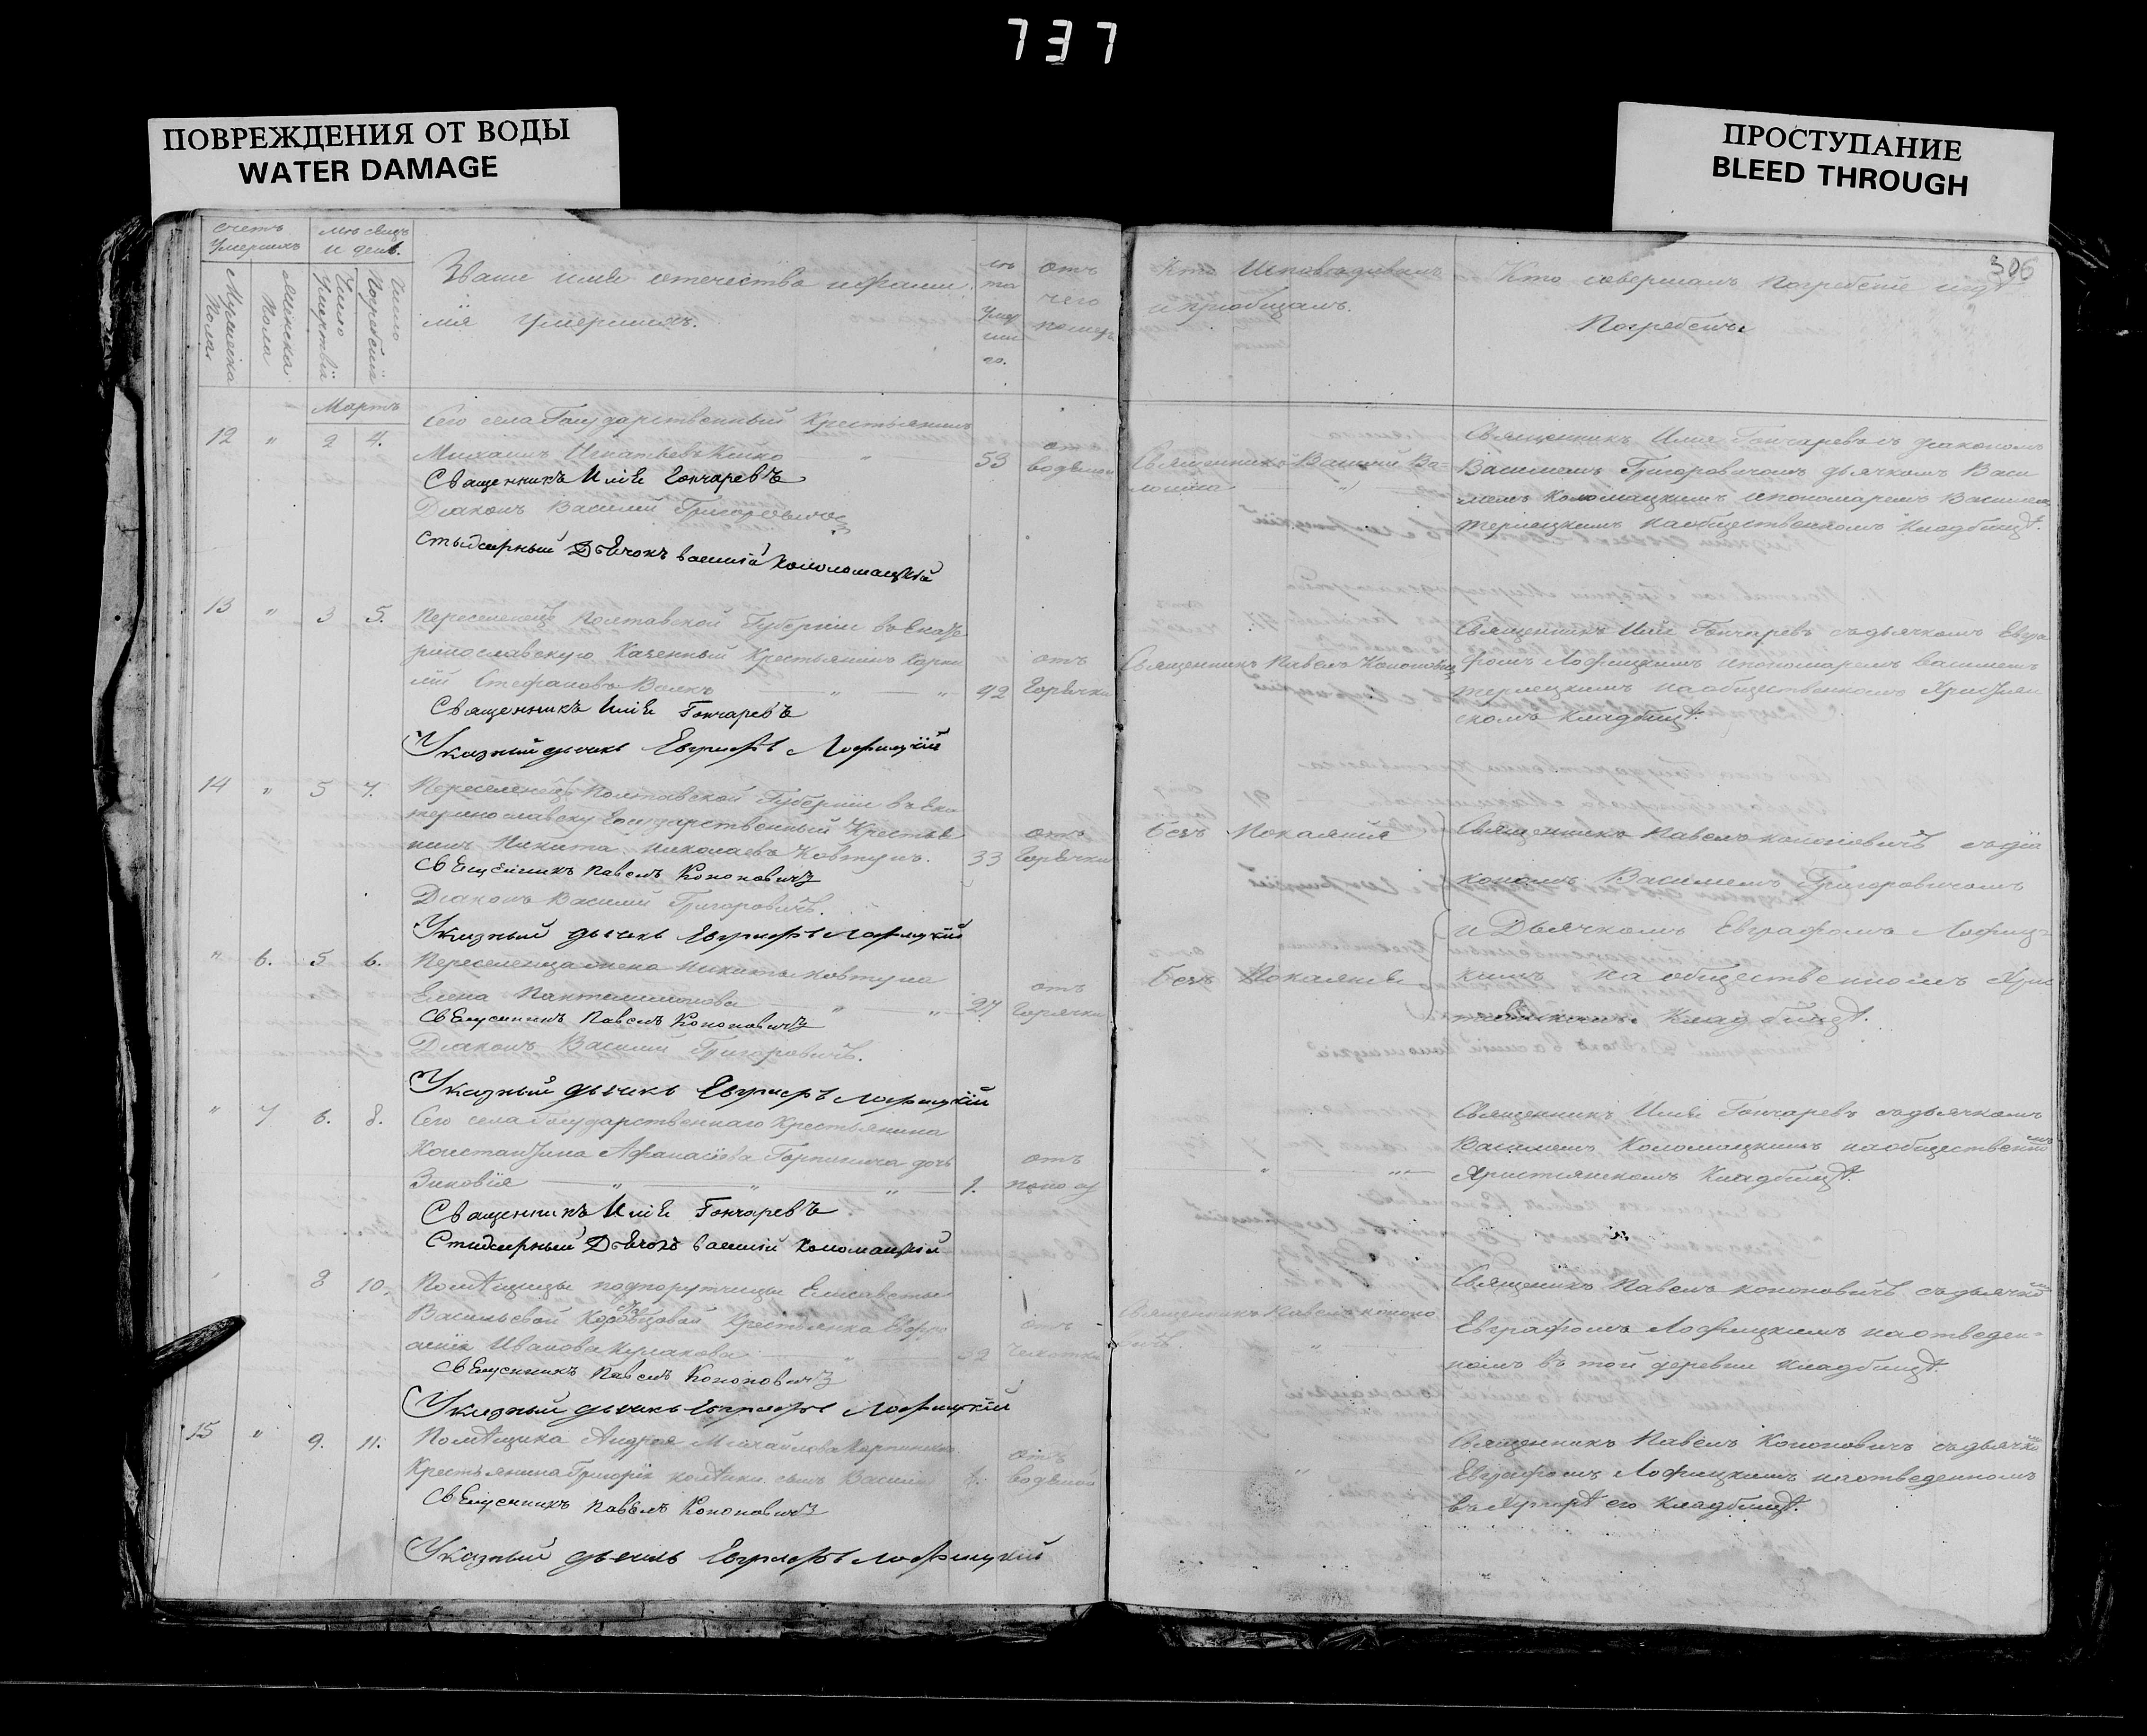 737
ПОВРЕЖДЕНИЯ ОТ ВОДЫ
WATER DAMAGE
ПРОСТУПАНИЕ
BLEED THROUGH
306
счетъ Умершихъ
мѣсяцъ и день.
Мужеска Пола.
Женска Пола
Число Умертвія
Число Погребенія
Званіе имя отечество и фами
лія Умершихъ.
лѣ
та
Умер
ша
го.
отъ
чего
померъ
Кто Исповѣдивалъ
и пріобщалъ.
Кто совершалъ Погребеніе и гдѣ
Погребены
Мартъ
Сего села Государственный Крестьянинъ
12 " 2 4. Михаилъ Игнатьевъ 53 отъ водяной
Священникъ Илія Гончаревъ
Діаконъ Василій Григоровичъ
Стихарный Дьячокъ Василій Коломацкій
Священникъ Василій Ва=
Священникъ Илія Гончаревъ съ діакономъ
Василіемъ Григоровичомъ дьячкомъ Васи
ліемъ Коломацкимъ и пономаремъ Василіемъ
Терлецкимъ на общественномъ Кладбищѣ.
13 " 3 5. Переселенецъ Полтавской Губерніи въ Екате
ринославскую Казенный Крестьянинъ Корни
лій Стефановъ 42 отъ Горячки
Священникъ Илія Гончаревъ
Указный дьячекъ Евграфъ Лофицкій
Священникъ Павелъ Кононовичъ
Священникъ Илія Гончаревъ съ дьячкомъ Евгра
фомъ Лофицкимъ и пономаремъ Василіемъ
Терлецкимъ на общественномъ Христіян
скомъ Кладбищѣ.
14 " 5 7. Переселенецъ Полтавской Губерніи въ Ека
теринославску Государственный Крестья
нинъ Никита Николаевъ Ковтунъ. 33 отъ Горячки
Священникъ Павелъ Кононовичъ
Діаконъ Василій Григоровичъ.
Указный дьячекъ Евграфъ Лофицкій
Безъ Покаянія
Священникъ Павелъ Кононовичъ съ діа
кономъ Василіемъ Григоровичомъ
и Дьячкомъ Евграфомъ Лофиц=
кимъ на общественномъ Хрис
тіянскомъ Кладбищѣ.
" 6. 5 6. Переселенца жена Никиты Ковтуна
Елена Пантелимонова 27 отъ Горячки
Священникъ Павелъ Кононовичъ
Діаконъ Василій Григоровичъ.
Указный дьячекъ Евграфъ Лофицкій
Безъ Покаянія
" 7 6. 8. Сего села Государственнаго Крестьянина
Константина Афанасіева дочь
Зиновія 1. отъ поносу
Священникъ Илія Гончаревъ
Стихарный Дьячокъ Василій Коломацкій
Священникъ Илія Гончаревъ съ дьячкомъ
Василіемъ Коломацкимъ на общественномъ
Христіянскомъ Кладбищѣ.
8 10. Помѣщицы подпорутчицы Елисаветы
Васильевой Крестьянка Евфро
синія Иванова 32 отъ Чехотки
Священникъ Павелъ Кононовичъ
Указный дьячекъ Евграфъ Лофицкій
Священникъ Павелъ Кононо
вичъ.
Священикъ Павелъ Кононовичъ съ дьячкомъ
Евграфомъ Лофицкимъ на отведен=
номъ въ той деревни Кладбищѣ.
15 " 9. 11. Помѣщика Андрея Михайлова
Крестьянина Григорія сынъ Василій 1. отъ водяной
Священникъ Павелъ Кононовичъ
Указный дьячекъ Евграфъ Лофицкій
Священникъ Павелъ Кононовичъ съ дьячкомъ
Евграфомъ Лофицкимъ на отведенномъ
въ его Кладбищѣ.